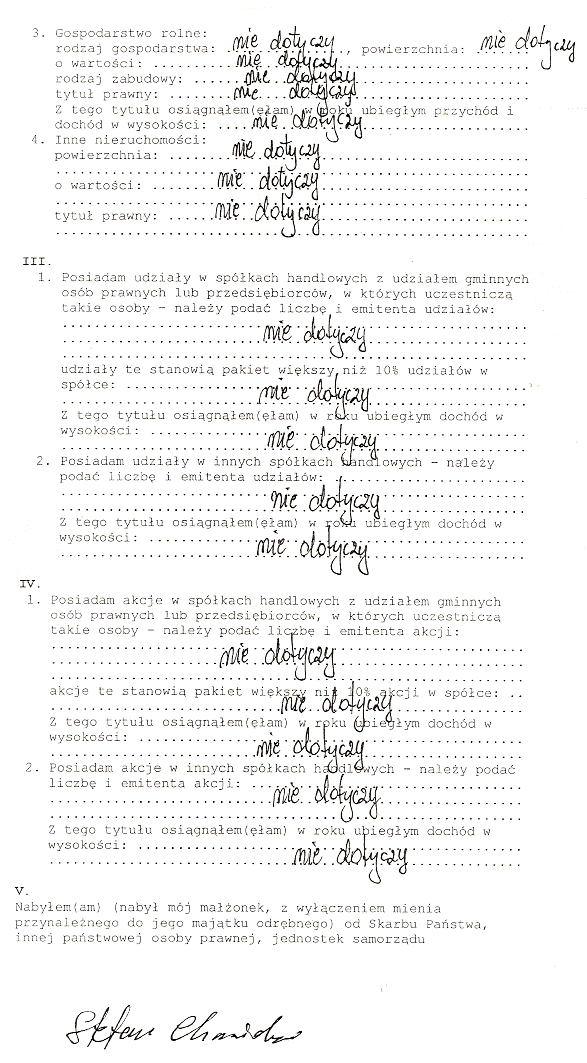 3. Gospodarstwo rolne:
rodzaj gospodarstwa: nie dotyczy, powierzchnia: nie dotyczy
o wartości: nie dotyczy
rodzaj zabudowy: nie dotyczy
tytuł prawny: nie dotyczy
Z tego tytułu osiągnąłem(ęłam) w roku ubiegłym przychód i
dochód w wysokości: nie dotyczy
4. Inne nieruchomości:
powierzchnia: nie dotyczy
o wartości: nie dotyczy
tytuł prawny: nie dotyczy
III.
1. Posiadam udziały w spółkach handlowych z udziałem gminnych
osób prawnych lub przedsiębiorców, w których uczestniczą
takie osoby – należy podać liczbę i emitenta udziałów:
nie dotyczy
udziały te stanowią pakiet większy niż 10% udziałów w
spółce: nie dotyczy
Z tego tytułu osiągnąłem(ęłam) w roku ubiegłym dochód w
wysokości: nie dotyczy
2. Posiadam udziały w innych spółkach handlowych – należy
podać liczbę i emitenta udziałów:
nie dotyczy
Z tego tytułu osiągnąłem(ęłam) w roku ubiegłym dochód w
wysokości: nie dotyczy
IV.
1. Posiadam akcje w spółkach handlowych z udziałem gminnych
osób prawnych lub przedsiębiorców, w których uczestniczą
takie osoby – należy podać liczbę i emitenta akcji:
nie dotyczy
akcje te stanowią pakiet większy niż 10% akcji w spółce:
nie dotyczy
Z tego tytułu osiągnąłem(ęłam) w roku ubiegłym dochód w
wysokości: nie dotyczy
2. Posiadam akcje w innych spółkach handlowych – należy podać
liczbę i emitenta akcji: nie dotyczy
Z tego tytułu osiągnąłem(ęłam) w roku ubiegłym dochód w
wysokości: nie dotyczy
V.
Nabyłem(am) (nabył mój małżonek, z wyłączeniem mienia
przynależnego do jego majątku odrębnego) od Skarbu Państwa,
innej państwowej osoby prawnej, jednostek samorządu
Stefan